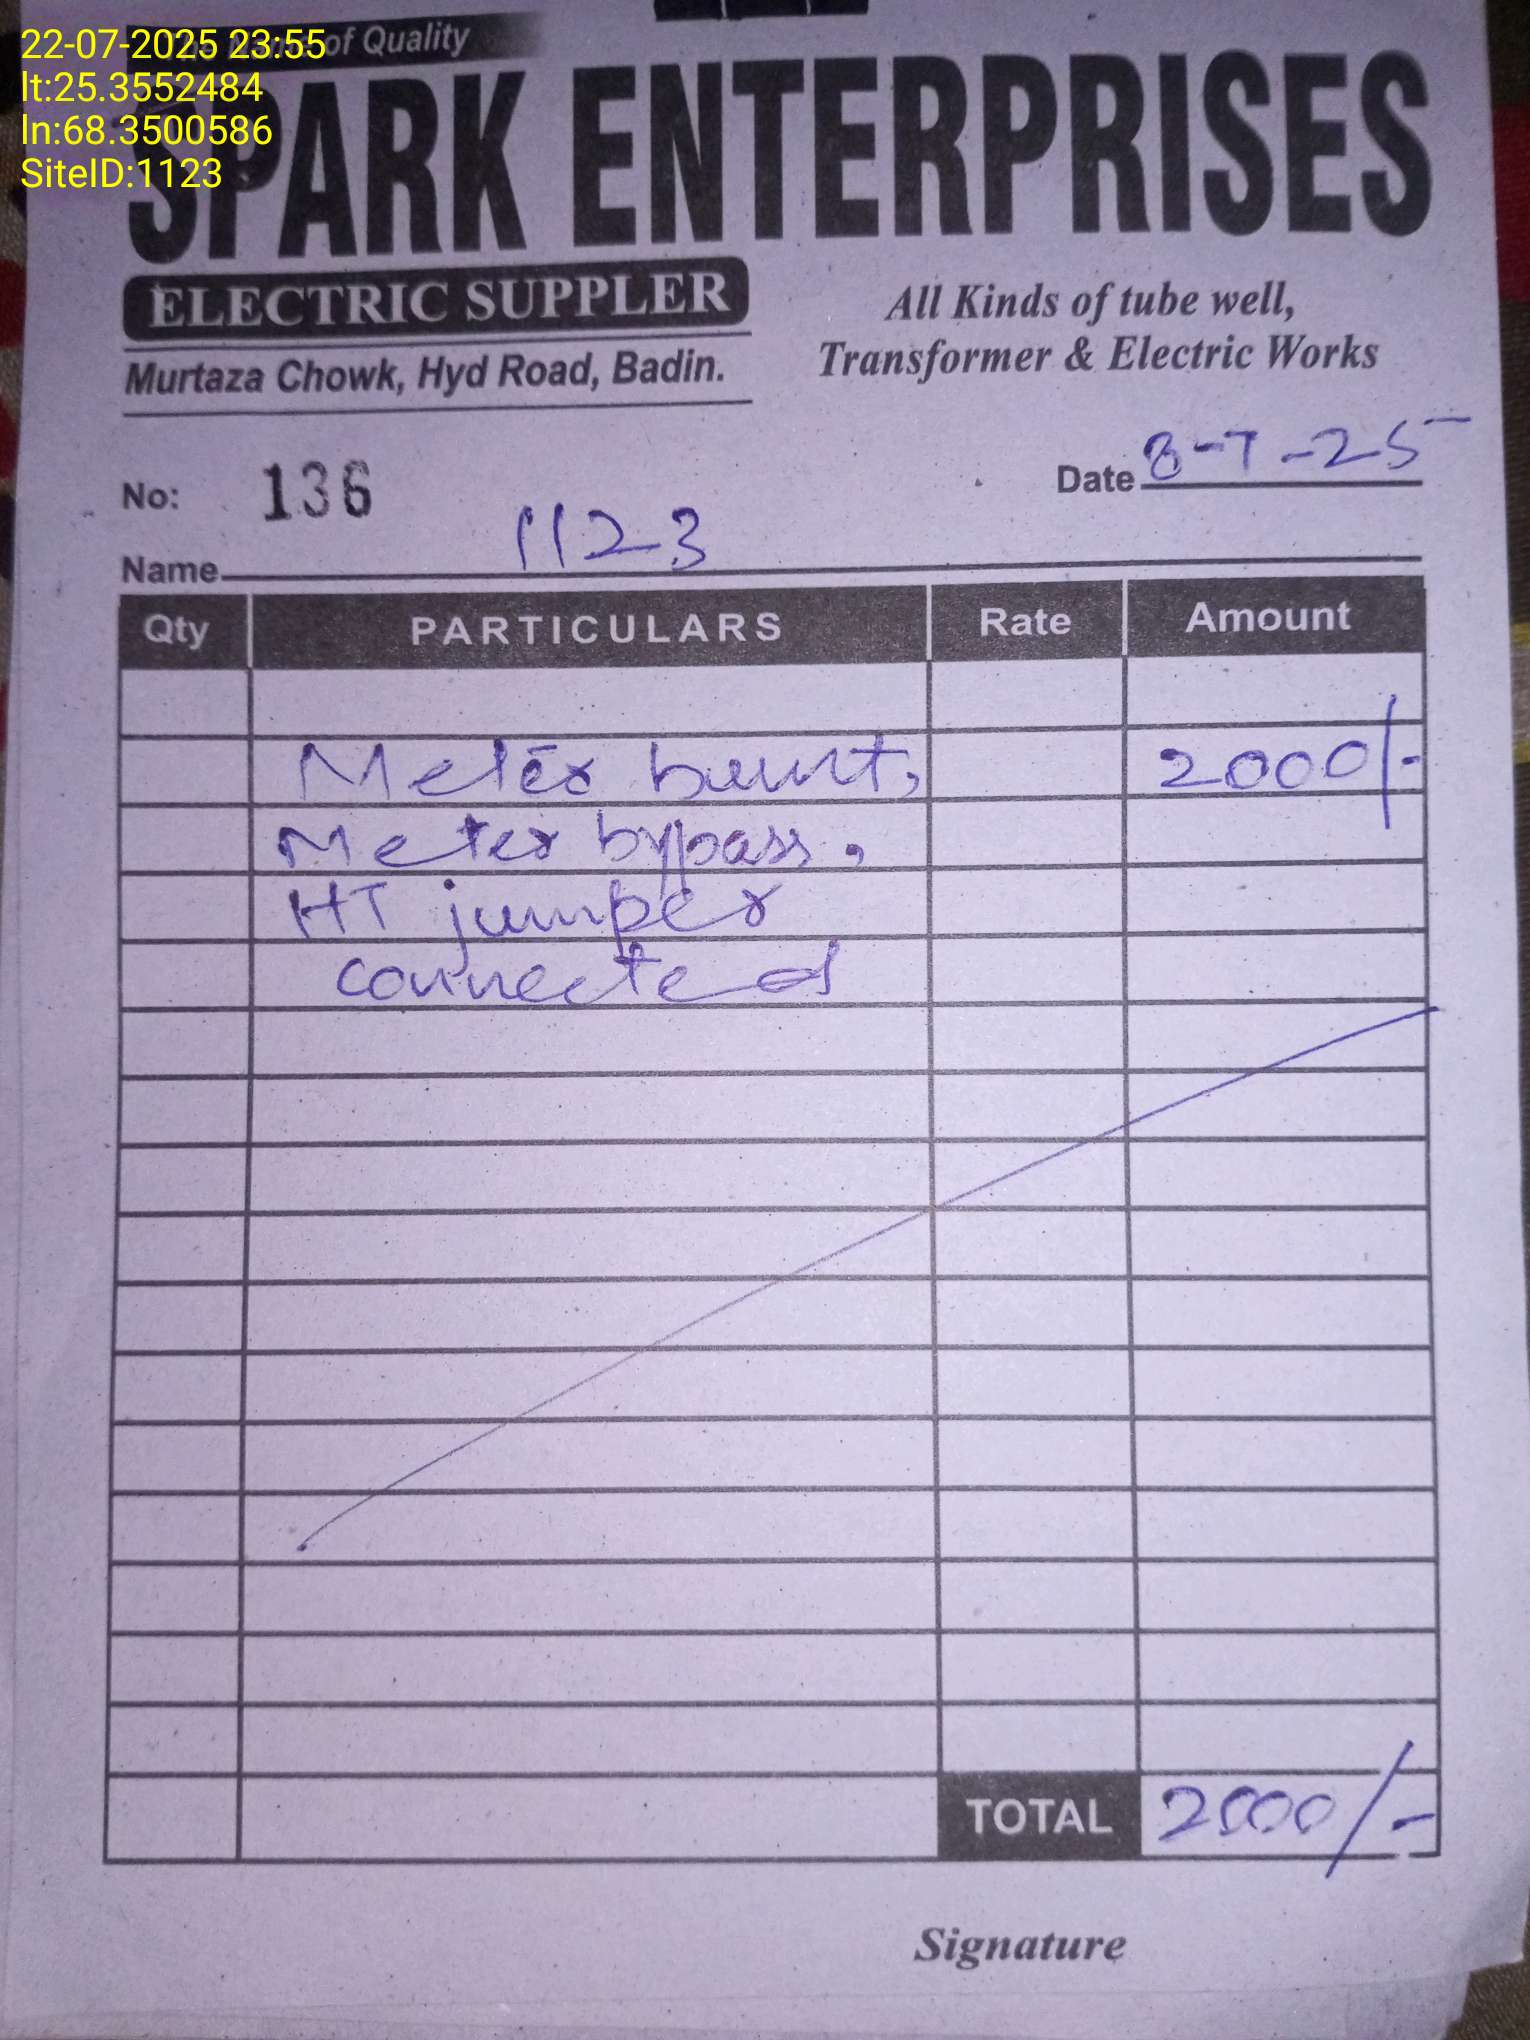 22-07-2025 23:55
lt:25.3552484
ln:68.3500586
SiteID:1123
of Quality
SPARK ENTERPRISES
ELECTRIC SUPPLER
Murtaza Chowk, Hyd Road, Badin.
All Kinds of tube well,
Transformer & Electric Works
No: 136
Date 8-7-25
Name 1123
Qty PARTICULARS Rate Amount
Meter burnt, 2000/-
Meter bypass,
HT jumper
connected
TOTAL 2000/-
Signature